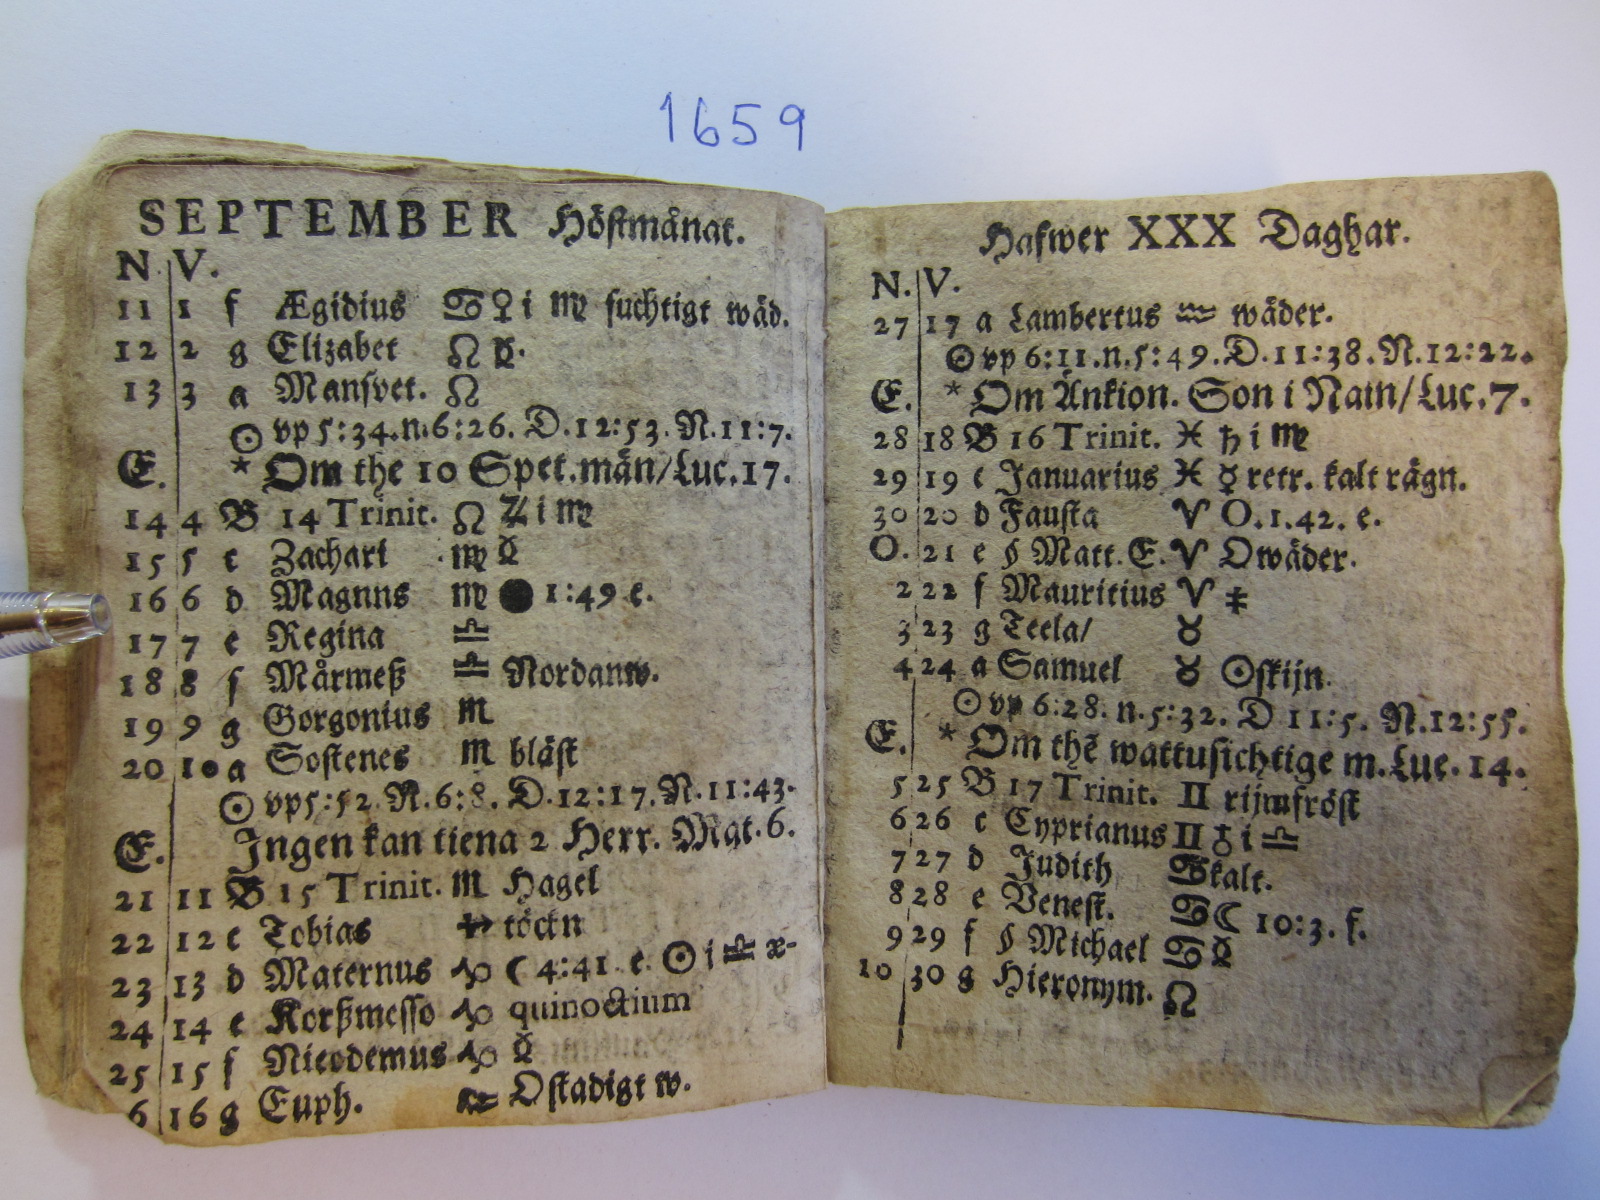 1659
SEPTEMBER Höstmånat.
N. V.
11 1 f Ægidius ♋ ♀ i ♍ fuchtigt wäd.
12 2 g Elizabet ♌
13 3 a Mansvet. ♌
☉ vp 5:34. n. 6:26. D. 12:53. N. 11:7.
E. * Om the 10 Spet. män/ Luc. 17.
14 4 B 14 Trinit. ♌ ♃ i ♍
15 5 c Zachari ♍
16 6 d Magnns ♍ ● 1:49 e.
17 7 e Regina ♎
18 8 f Mårmeß ♎ Nordanw.
19 9 g Gorgonius ♏
20 10 a Sostenes ♏ bläst
☉ vp 5:52. N. 6:8. D. 12:17. N. 11:43.
E. Ingen kan tiena 2 Herr. Mat. 6.
21 11 B 15 Trinit. ♏ Hagel
22 12 c Tobias ♐ töckn
23 13 d Maternus ♑ ☾ 4:41. e. ☉ i ♎ æ-
24 14 e Korßmesso ♑ quinoctium
25 15 f Nicodemus ♑
6 16 g Euph. ♒ Ostadigt w.
Hafwer XXX Daghar.
N. V.
27 17 a Lambertus ♒ wäder.
☉ vp 6:11. n. 5:49. D. 11:38. N. 12:22.
E. * Om Änkion. Son i Nain/ Luc. 7.
28 18 B 16 Trinit. ♓ ♄ i ♍
29 19 c Januarius ♓ ☿ retr. kalt rägn.
30 20 d Fausta ♈ O. 1. 42. e.
O. 21 e § Matt. E. ♈ Owäder.
2 22 f Mauritius ♈
3 23 g Tecla/ ♉
4 24 a Samuel ♉ ☉skijn.
☉ vp 6:28. n. 5:32. D 11:5. N. 12:55.
E. * Om thē wattusichtige m. Luc. 14.
5 25 B 17 Trinit. ♊ rijmfröst
6 26 c Cyprianus ♊ ♁ i ♎
7 27 d Judith ♋ kalt.
8 28 e Venest. ♋ ☾ 10:3. f.
9 29 f § Michael ♋
10 30 g Hieronym. ♌